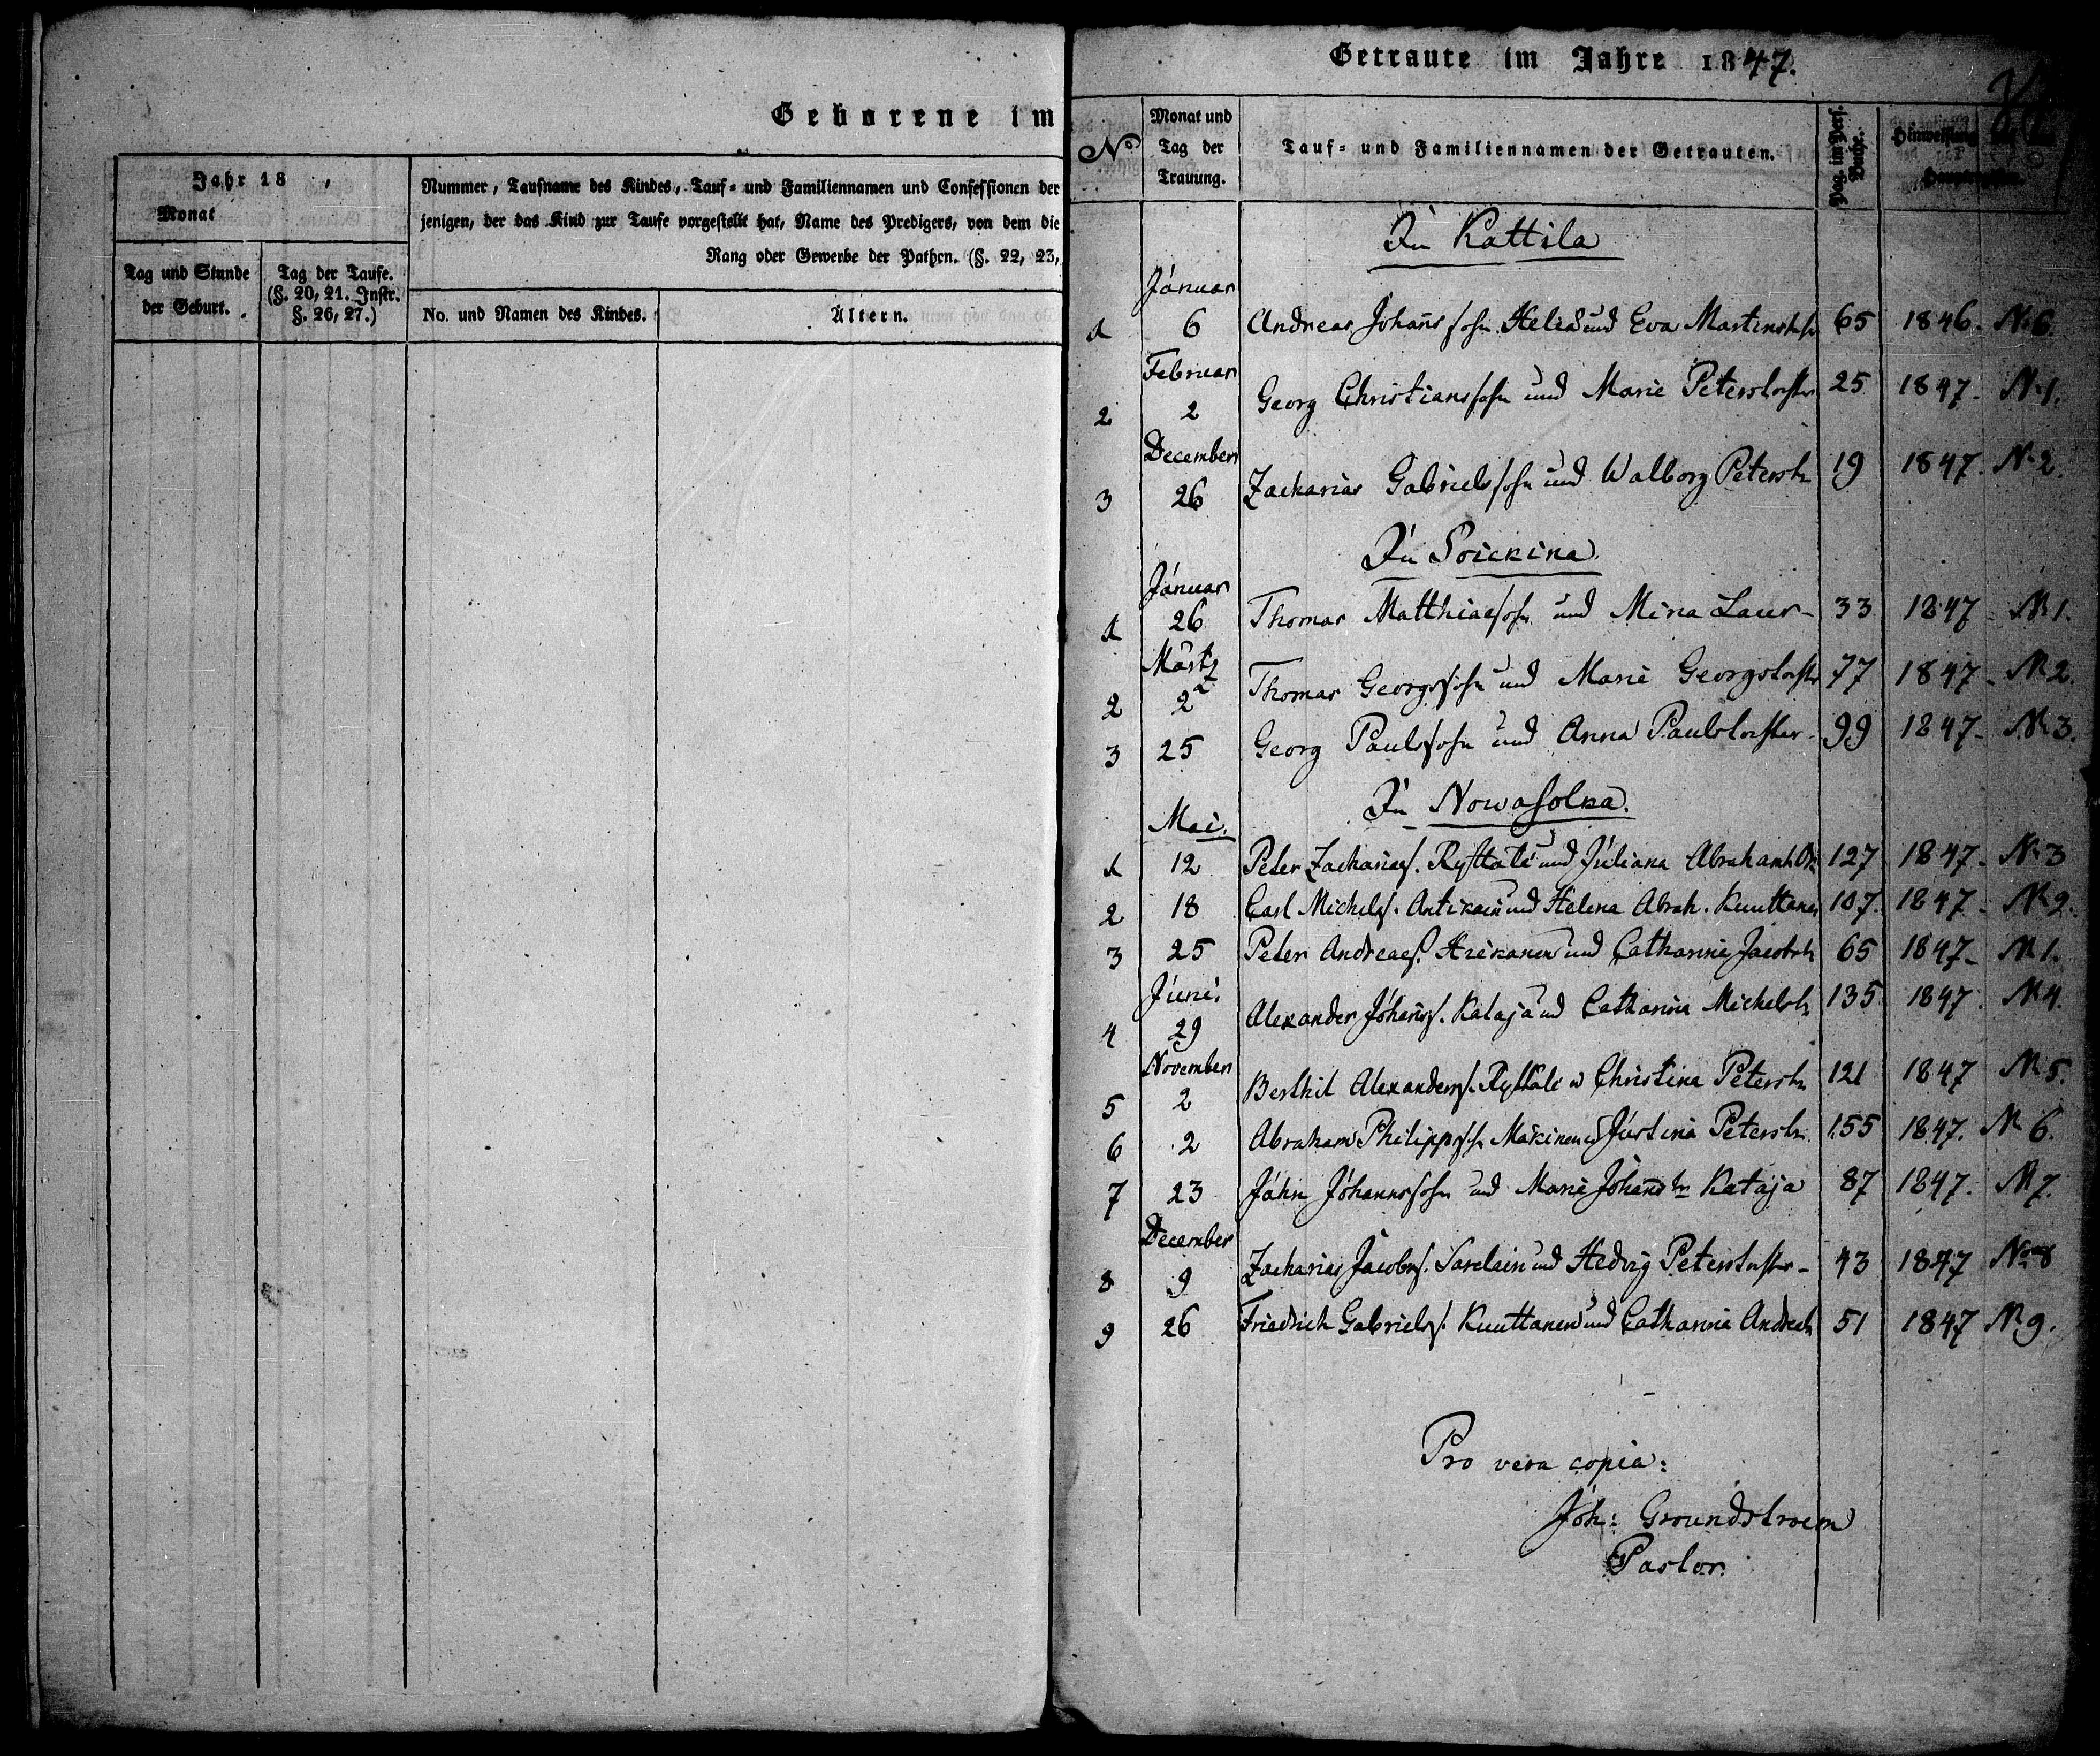 Geborene im
Jahr 18 ,
Monat
Nummer, Taufname des Kindes, Tauf= und Familiennamen und Confessionen der
jenigen, der das Kind zur Taufe vorgestellt hat, Name des Predigers, von dem die
Rang oder Gewerbe der Pathen. (§. 22, 23,
Tag und Stunde
der Geburt.
Tag der Taufe.
(§. 20, 21. Instr.
§. 26, 27.)
No. und Namen des Kindes.
Ältern.
Getraute im Jahre 1847.
No
Monat und
Tag der
Trauung.
Tauf= und Familiennamen der Getrauten.
Pag. im Pers.
Buche.
Hinweisung
In Kattila
Januar
1 6 Andreas Johanns sohn Heliä und Eva Martinstr 65 1846. No 6.
Februar
2 2 Georg Christianssohn und Marie Peterstochter 25 1847. No 1.
December
3 26 Zacharias Gabrielssohn und Walborg Peterstr 19 1847. No 2.
In Soickina.
Januar
1 26 Thomas Matthiassohn und Mina Laur- 33 1847 No 1.
Märtz
2 2 Thomas Georgssohn und Marie Georgstochter 77 1847 No 2.
3 25 Georg Paulssohn und Anna Paulstochter 99 1847 No 3.
In Nowasolka.
Mai.
1 12 Peter Zacharias. Ryttäli und Juliana Abrahamstr 127 1847 No 3
2 18 Carl Michels. Antikain und Helena Abrah. Kuuttanen 107. 1847 No 2.
3 25 Peter Andreas. und Catharina Jacobstr 65 1847 No 1.
Juni.
4 29 Alexander Johanns. Kataja und Catharina Michelstr 135 1847. No 4.
November
5 2 Berthil Alexanders. Ryttäli u Christina Peterstr 121 1847 No 5.
6 2 Abraham Philippssohn Mäkinen u Justina Peterstr. 155 1847. No 6.
7 23 Jahn Johannssohn und Marie Johanns tr Kataja 87 1847. No 7.
December
8 9 Zacharias Jacobs. Sarelain und Hedvig Peterstochter 43 1847 No 8
9 26 Friedrich Gabriels. Kuuttanen und Catharina Andreastr 51 1847 No 9.
Pro vera copia:
Joh: Groundstroem
Pastor.